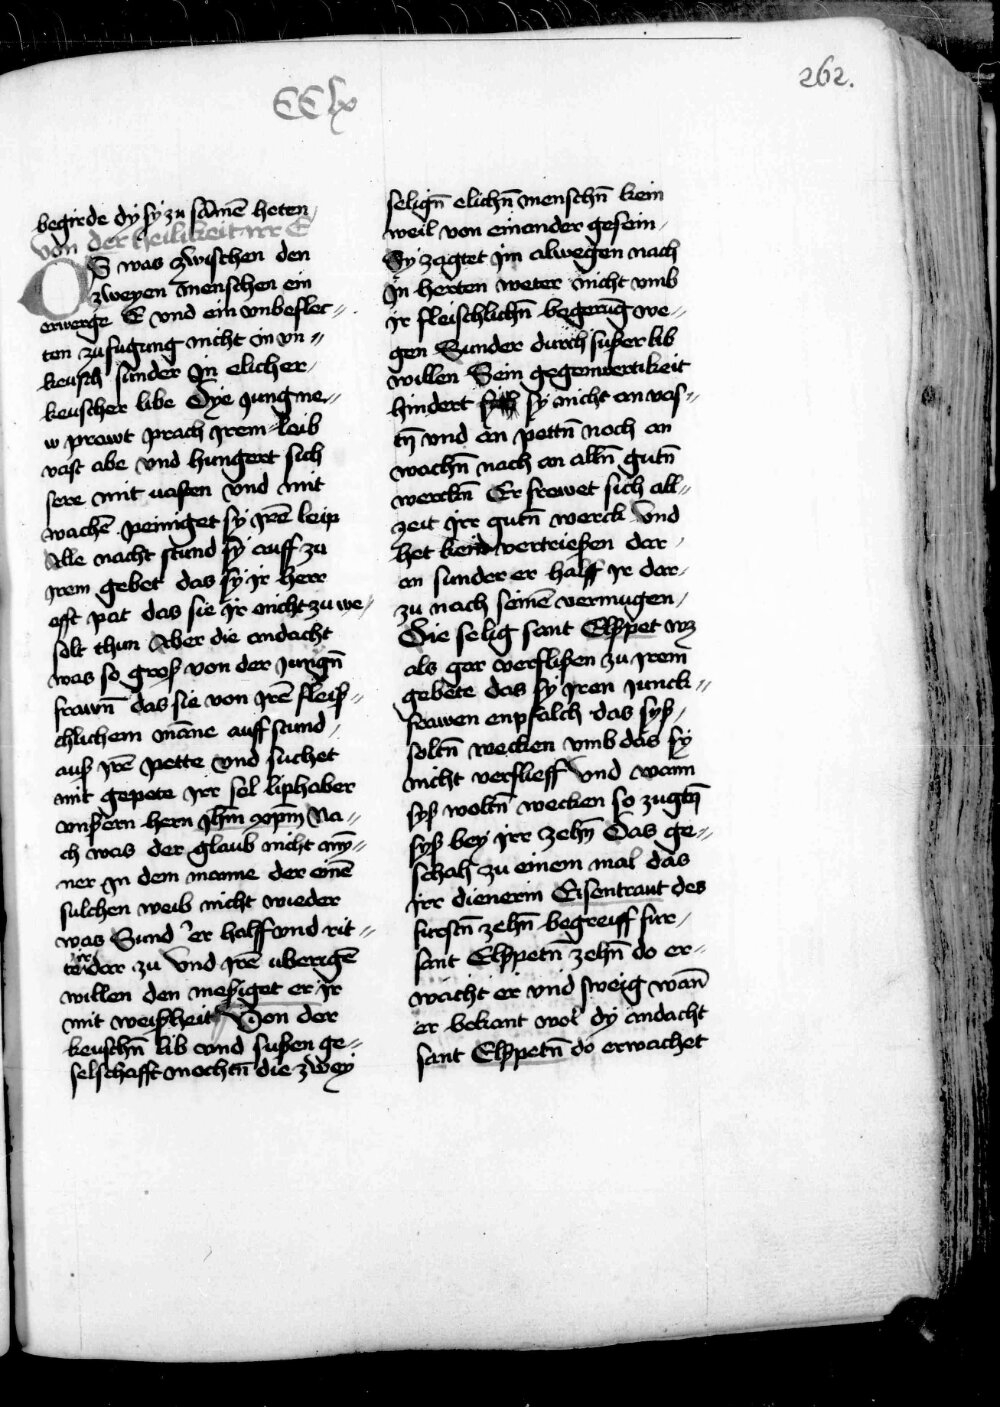 262.
CClx
begirde dy sy zu samē heten
von der heilikeit irr E
Os was zwischen den
zweyen menschen ein
erwerge E vnd ein vnbeflec-
ten zufugung nicht in vn-
keusch sunder Jn elicher
keuscher libe Dye jungne-
w prawt prach jrem leib
vast abe vnd hungert sich
sere mit vasten vnd mit
wachē peiniget sy jrē leip
Alle nacht stund sy auff zu
jrem gebet das sy jr herr
offt pat das sie jr nicht zu we
solt thun Aber die andacht
was so groß von der jungn̄
frawn̄ das sie von jrē fleiß-
chlichem māne auff stund
auß jrē pette vnd suchet
mit gepete irr sel liphaber
vnßern hern jhm̄ xpm̄ Na-
ch was der glaub nicht myn-
ner jn dem manne der einē
sulchen weib nicht wieder
was Sund er halff vnd rit-
te ir dar zu vnd jrē uberigē
willen den meßiget er jr
mit weißheit Von der
keuschn̄ lib vnd sußen ge-
selschafft mochtn̄ die zwey
selign̄ elichn̄ menschn̄ kein
weil von einander gesein
Sy zagtet jm alwegen nach
Jn herten weter nicht vmb
jr fleischlichn̄ begerūg we-
gen Sunder durch sußer lib
willen Sein gegenwertikeit
hindert sy nicht an vas-
tn̄ vnd an pettn̄ noch an
wachn̄ nach an alln̄ gutn̄
wercktn̄ Er frewet sich all-
zeit jrr gutn̄ werck Vnd
het kein vertrießen dar
an sunder er halff jr dar-
zu nach seinē vermugen
Die selig sant Elßpet wz
als gar verflißen zu jrem
gebete das sy jren junck-
frawen enpfalch das syß
soltn̄ wecken vmb das sy
nicht verslieff Vnd wann
syß woltn̄ wecken so zugtn̄
syß bey jrr zehn̄ Das ge-
schah zu einem mal das
jrr dienerin Eisentraut des
furstn̄ zehn̄ begreiff fur
sant Elßpetn̄ zehn̄ do er-
wacht er vnd sweig wan̄
er bekant wol dy andacht
sant Elßpetn̄ do erwachet